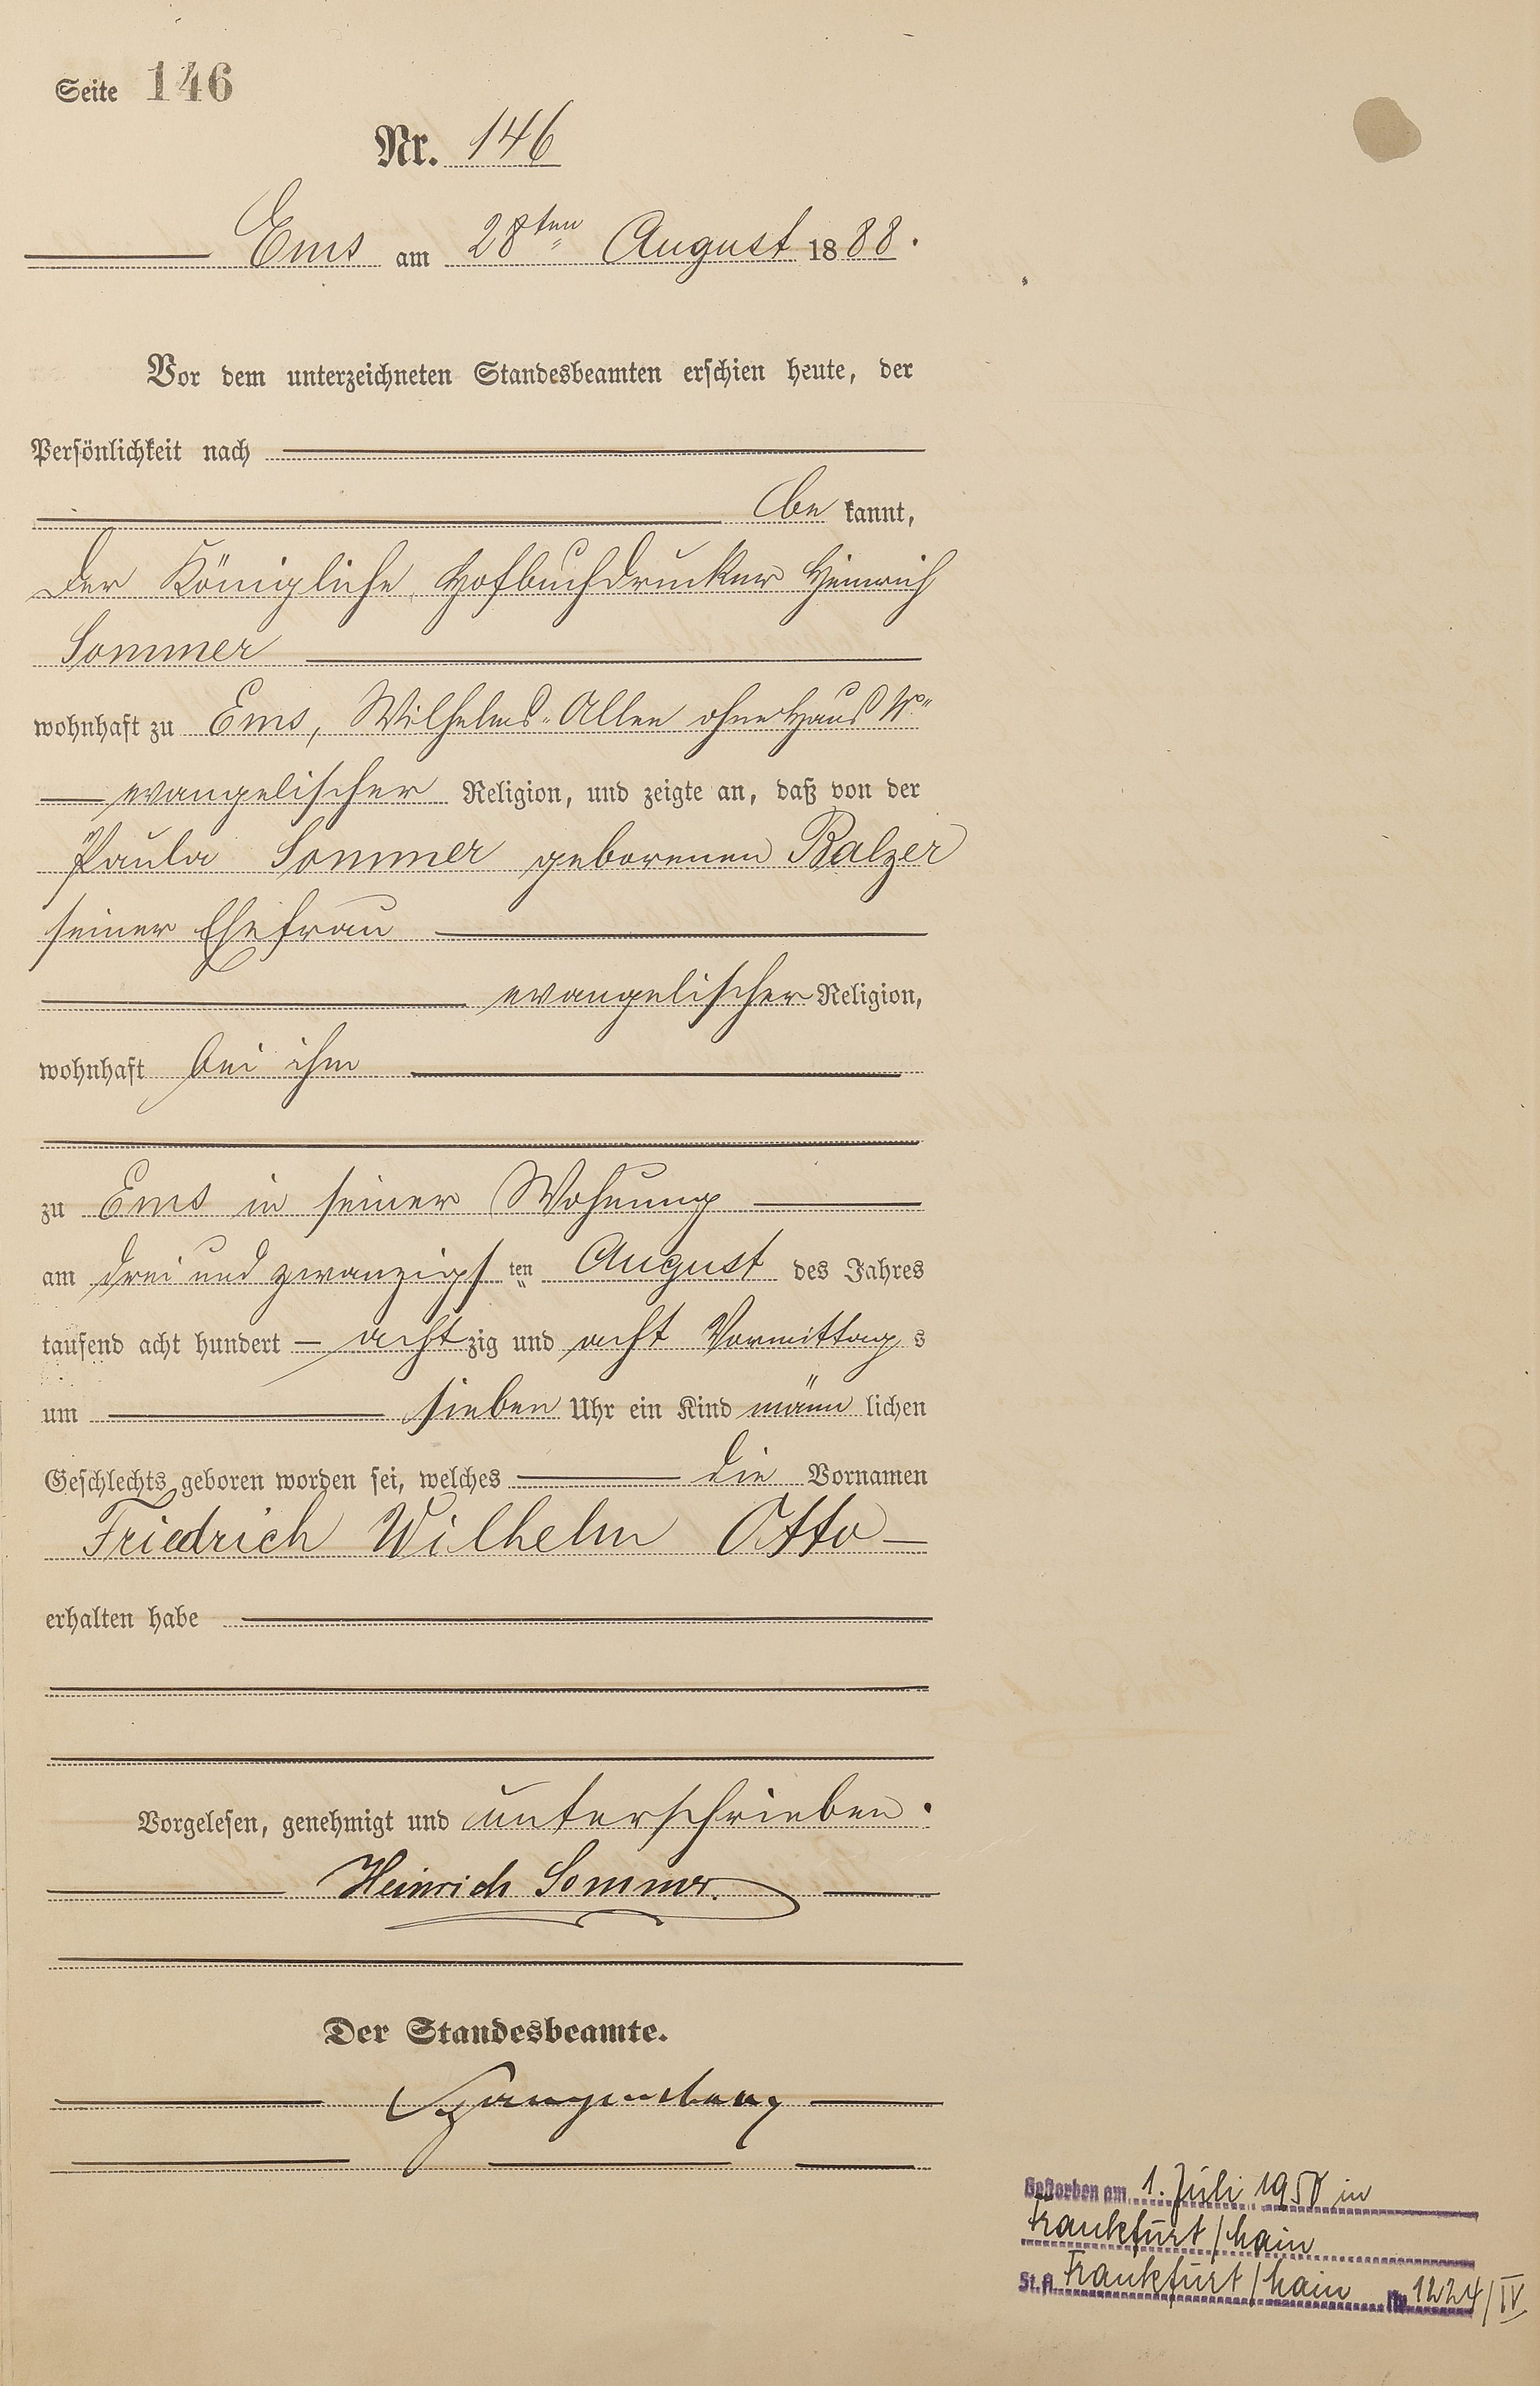 Seite 146
Nr. 146
Ems am 28ten August 1888.
Vor dem unterzeichneten Standesbeamten erschien heute, der
Persönlichkeit nach
be kannt,
der Königliche Hofbuchdrucker Heinrich
Sommer
wohnhaft zu Ems, Wilhelms-Allee ohne Haus Nr.
evangelischer Religion, und zeigte an, daß von der
Paula Sommer geborenen Balzer
seiner Ehefrau
evangelischer Religion,
wohnhaft bei ihm
zu Ems in seiner Wohnung
am drei und zwanzigs ten August des Jahres
tausend acht hundert acht zig und acht Vormittag s
um sieben Uhr ein Kind männ lichen
Geschlechts geboren worden sei, welches die Vornamen
Friedrich Wilhelm Otto
erhalten habe
Vorgelesen, genehmigt und unterschrieben.
Heinrich Sommer.
Der Standesbeamte.
Gestorben am 1. Juli 1950 in
Frankfurt/Main
St.A. Frankfurt/Main Nr. 1224/IV